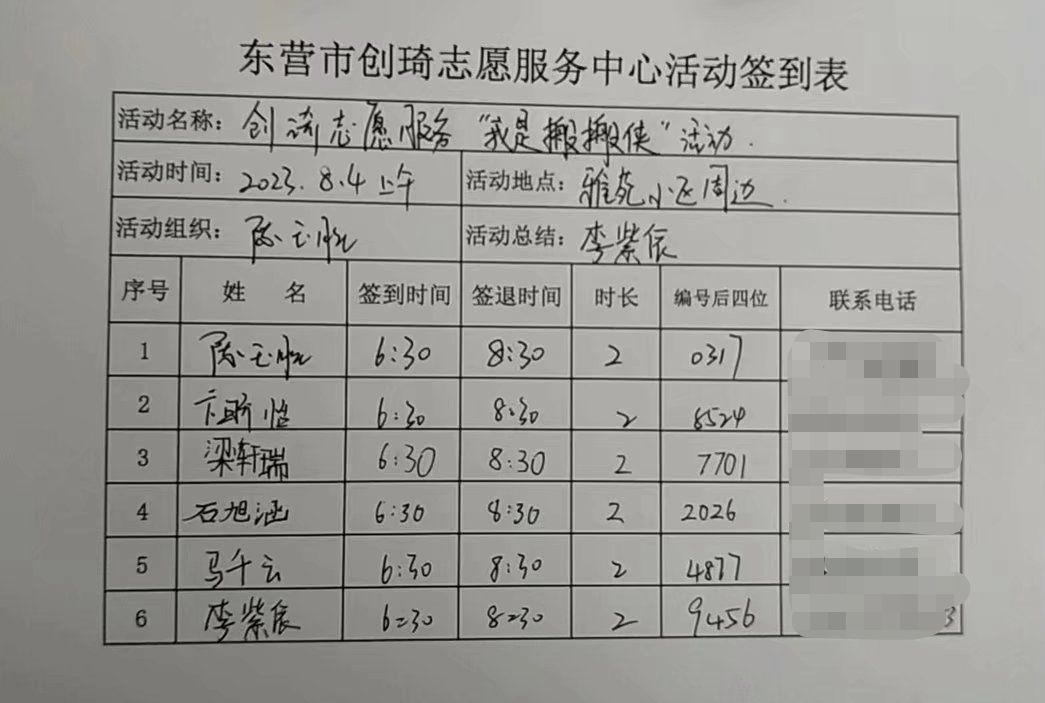 东营市创琦志愿服务中心活动签到表
活动名称: 创琦志愿服务“我是搬搬侠”活动.
活动时间: 2023.8.4 上午 活动地点: 雅苑小区周边.
活动组织: 活动总结: 李紫辰
序号 姓 名 签到时间 签退时间 时长 编号后四位 联系电话
1 6:30 8:30 2 0317
2 6:30 8:30 2 8524
3 梁轩瑞 6:30 8:30 2 7701
4 石旭涵 6:30 8:30 2 2026
5 马千云 6:30 8:30 2 4877
6 李紫辰 6:30 8:30 2 9456 3